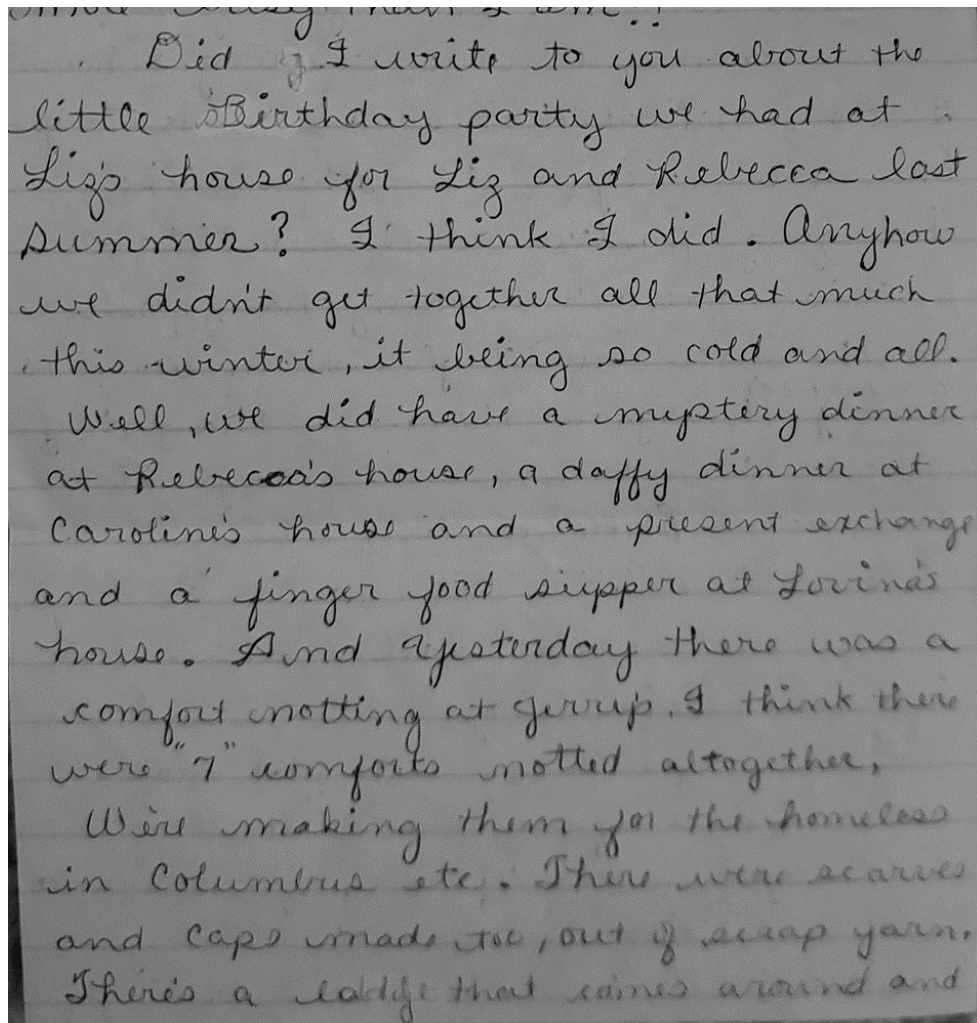 than I am!!
Did I write to you about the
little Birthday party we had at
Liz's house for Liz and Rebecca last
summer? I think I did. Anyhow
we didn't get together all that much
this winter, it being so cold and all.
Well, we did have a mystery dinner
at Rebecca's house, a daffy dinner at
Caroline's house and a present exchange
and a finger food supper at Lovina's
house. And yesterday there was a
comfort knotting at I think there
were "7" comforts knotted altogether,
We're making them for the homeless
in Columbus etc. There were scarves
and caps made too, out of scrap yarn.
There's a that comes around and